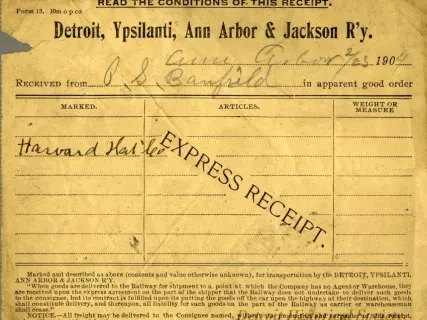 READ THE CONDITIONS OF THIS RECEIPT.
Form 13. 10m o p c s
Detroit, Ypsilanti, Ann Arbor & Jackson R'y.
Ann Arbor 2/23 1904
RECEIVED from P G Banfield in apparent good order
MARKED. ARTICLES. WEIGHT OR MEASURE
Harvard Hat Co
EXPRESS RECEIPT.
Marked and described as above (contents and value otherwise unknown), for transportation by the DETROIT, YPSILANTI,
ANN ARBOR & JACKSON R'Y.
"When goods are delivered to the Railway for shipment to a point at which the Company has no Agent or Warehouse, they
are received upon the express agreement on the part of the shipper that the Railway does not undertake to deliver such goods
to the consignee, but its contract is fulfilled upon its putting the goods off the car upon the highway at their destination, which
shall constitute delivery, and thereupon, all liability for such goods on the part of the Railway as carrier or warehouseman
NOTICE.—All freight may be delivered to the Consignee named,